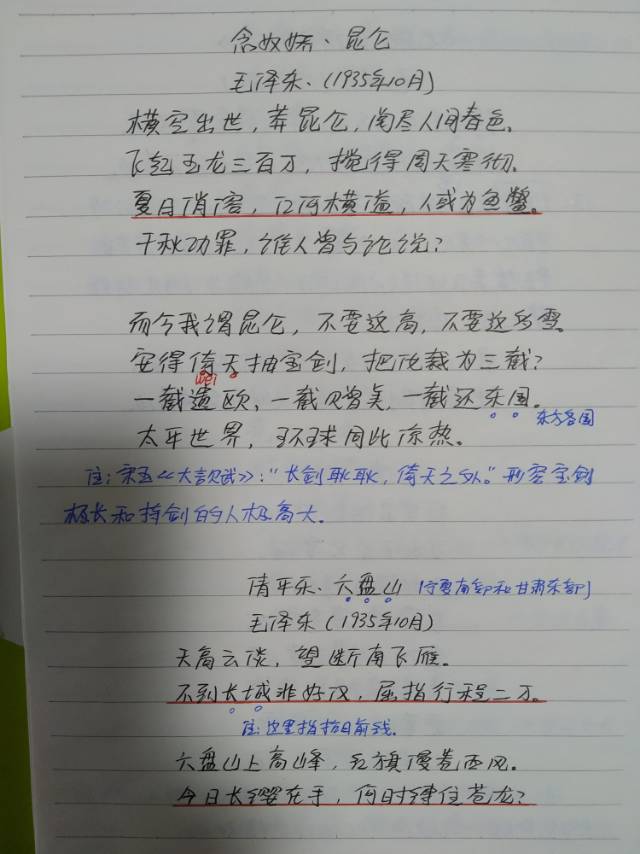 念奴娇、昆仑
毛泽东、(1935年10月)
横空出世，莽昆仑，阅尽人间春色。
飞起玉龙三百万，搅得周天寒彻。
夏日消溶，江河横溢，人或为鱼鳖。
千秋功罪，谁人曾与论说？
而今我谓昆仑，不要这高，不要这多雪。
安得倚天抽宝剑，把汝裁为三截？
wèi
一截遗欧、一截赠美，一截还东国。
东方各国
太平世界，环球同此凉热。
注：宋玉《大言赋》："长剑耿耿，倚天之外。"形容宝剑
极长和持剑的人极高大。
清平乐、六盘山 (宁夏南部和甘肃东部)
毛泽东 (1935年10月)
天高云淡，望断南飞雁。
不到长城非好汉，屈指行程二万。
注：这里指抗日前线。
六盘山上高峰，红旗漫卷西风。
今日长缨在手，何时缚住苍龙？